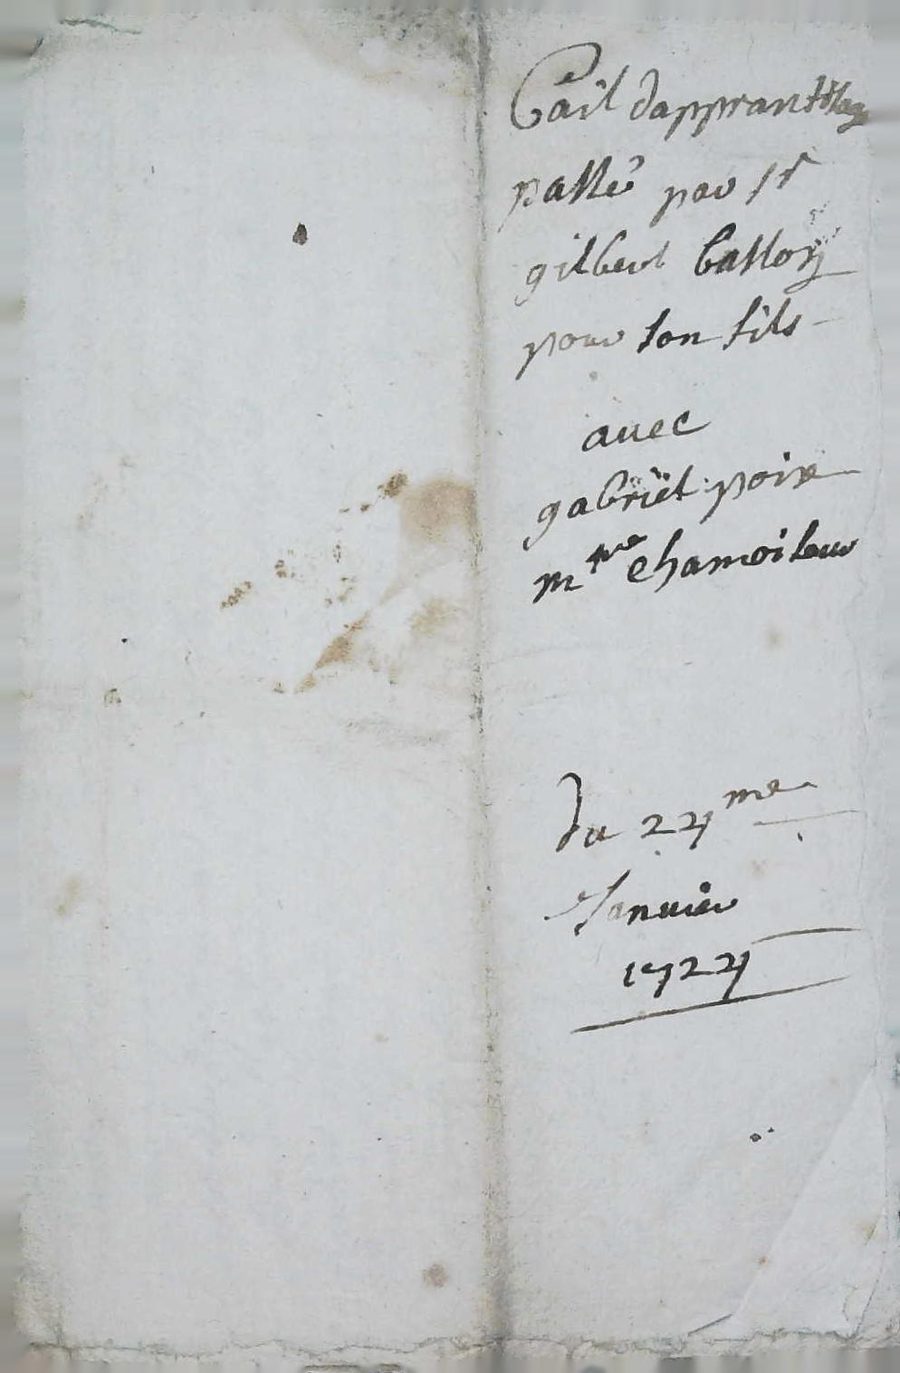 Bail dapprantisage
passé par sr
gilbert basson
pour son fils
avec
gabriël poix
mtre chamoiseur
du 24me
Januier
1724